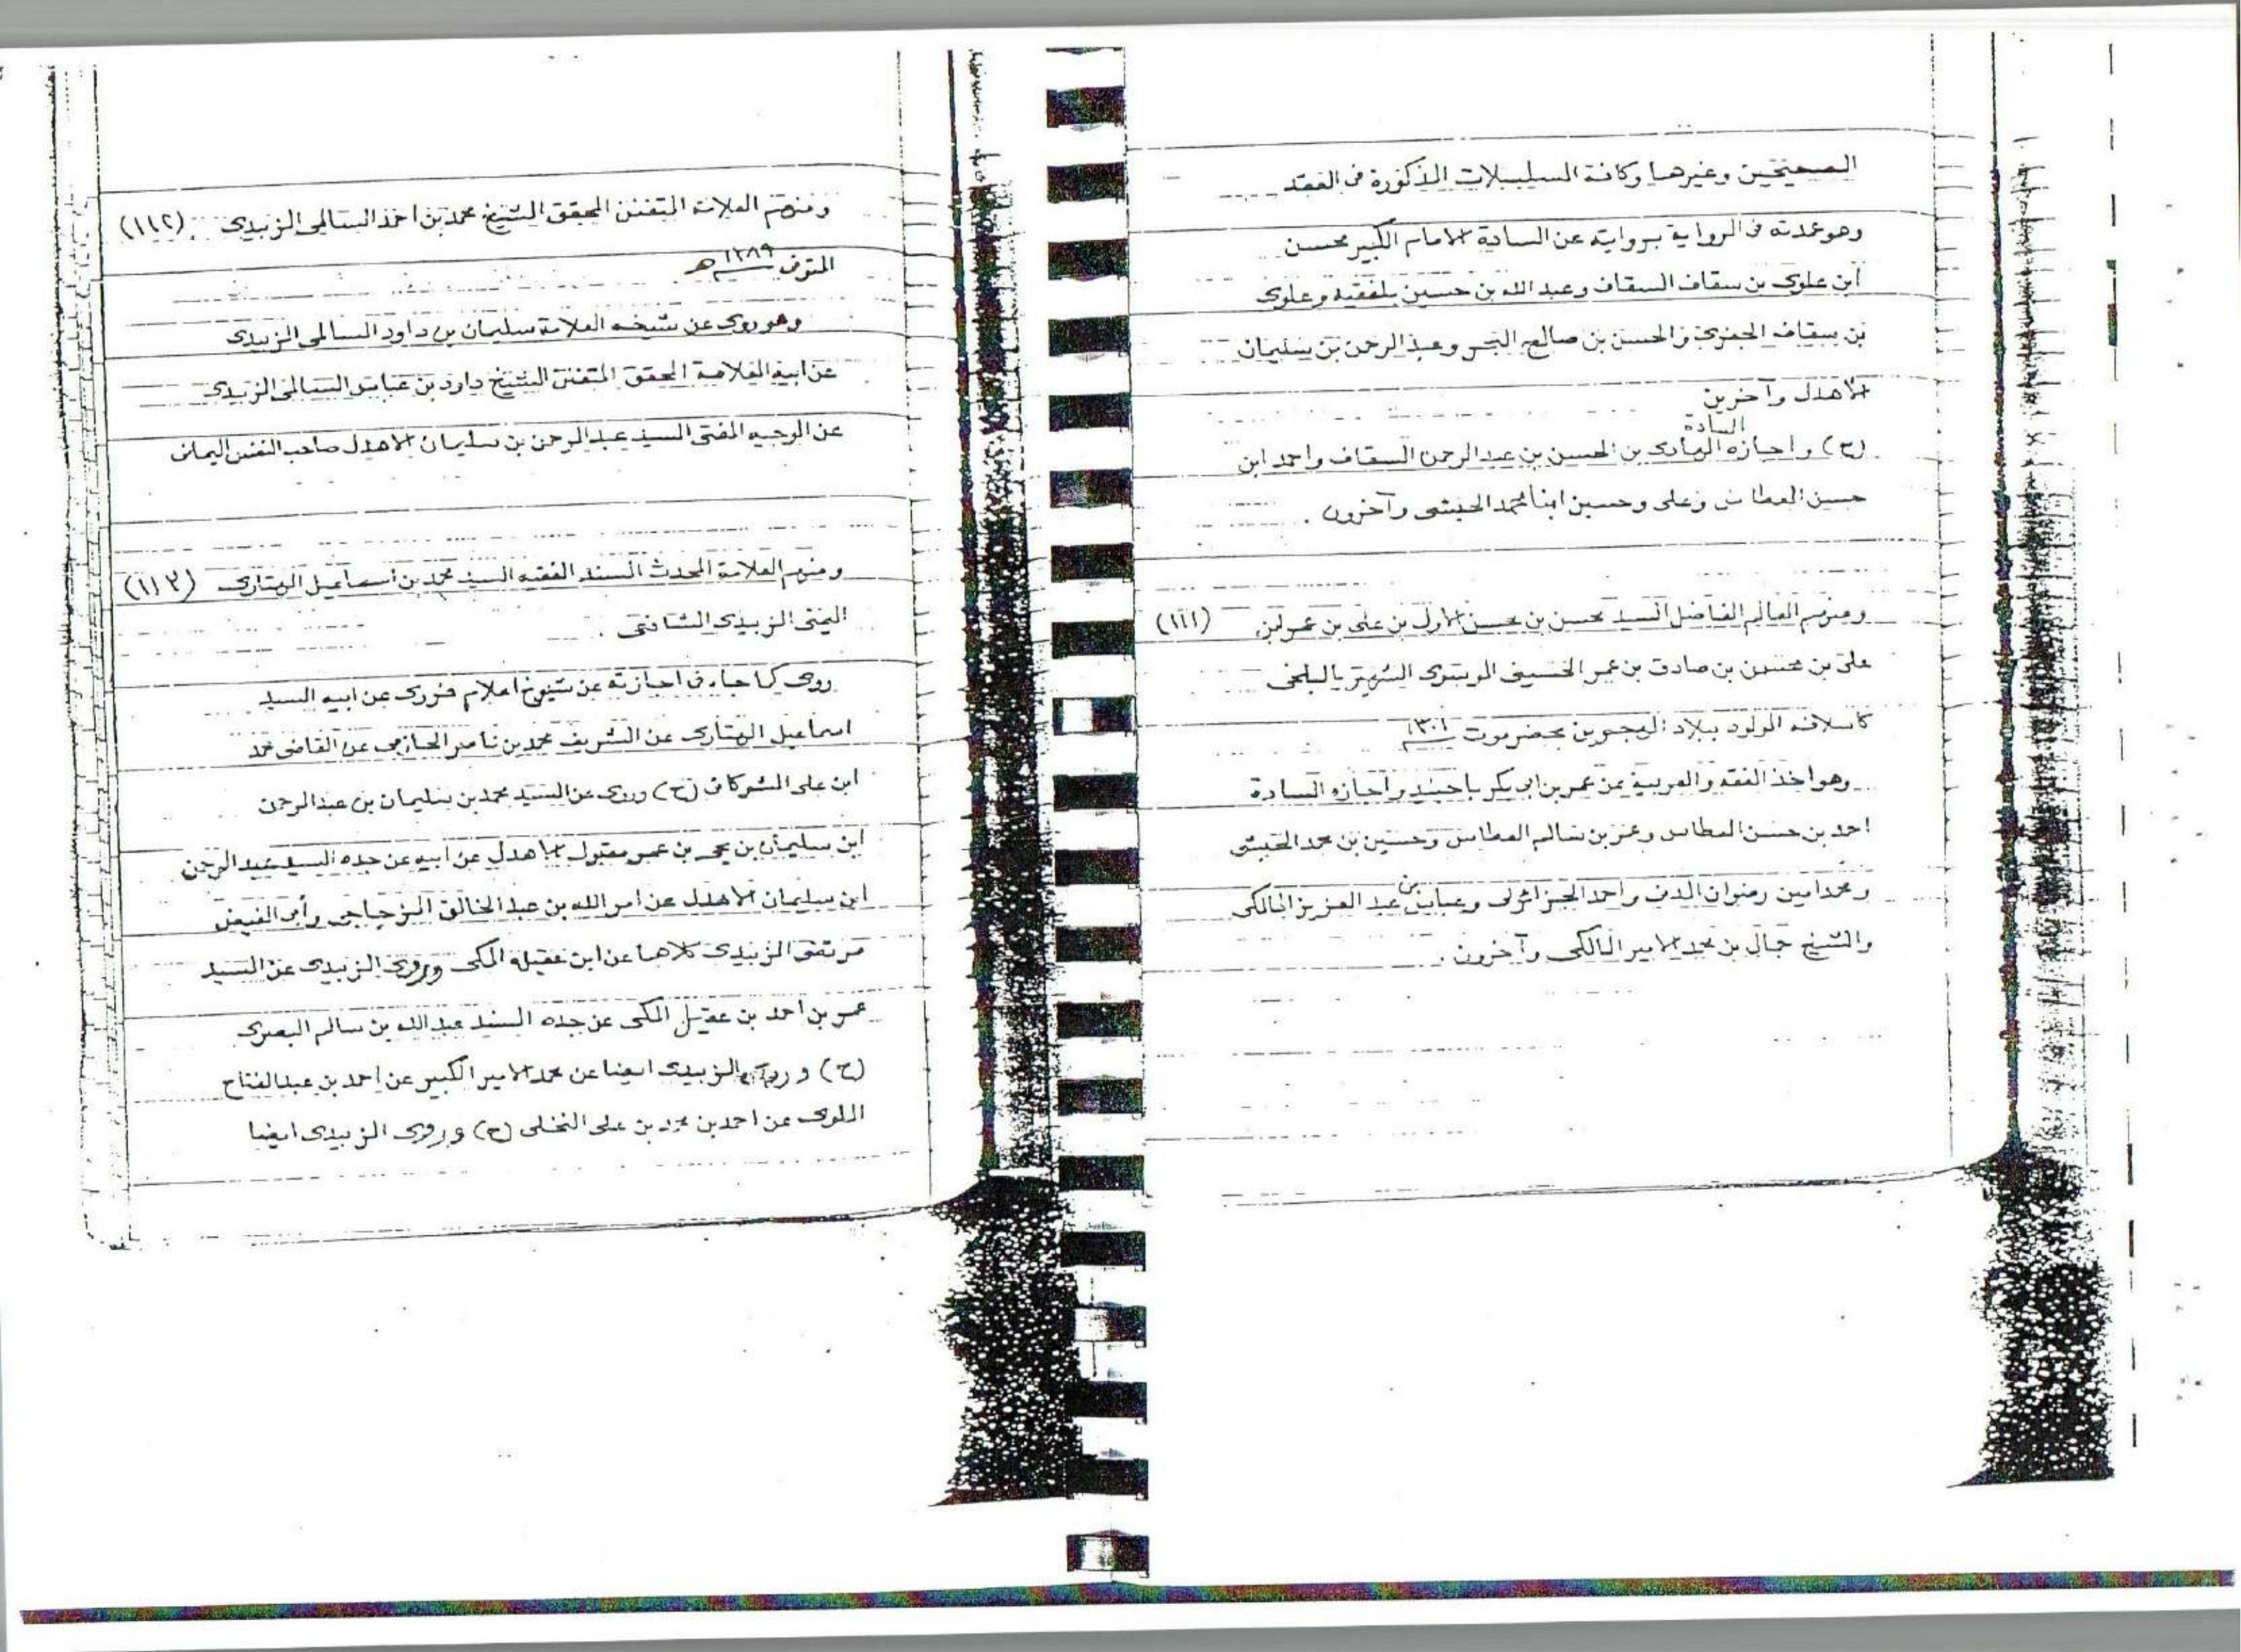 الصحيحين وغيرهما وكافة السلسلات المذكورة فى العقد
وهو عمدته فى الرواية بروايته عن السادة الامام الكبير محسن
ابن علوى بن سقاف السقاف وعبد الله بن حسين بلفقيه وعلوى
بن سقاف الجفرى والحسن بن صالح البحر وعبد الرحمن بن سليمان
الاهدل وآخرين
(ح) واجازه السادة الهادى بن الحسن بن عبد الرحمن السقاف واحمد ابن
حسن العطاس وعلى وحسين ابنا محمد الحبشى وآخرون .
ومنهم العالم الفاضل السيد محسن بن محسن الاول بن على بن عمر بن (١١١)
على بن محسن بن صادق بن عمر الحسينى الويسى الشهير بالبلخى
كاسلافه المولود ببلاد الهجرين بحضرموت ١٣٠١
وهو اخذ الفقه والعربية عن عمر بن ابى بكر باجنيد واجازه السادة
احمد بن حسن العطاس وعمر بن سالم العطاس وحسين بن محمد الحبشى
ومحمد امين رضوان المدنى واحمد الجزائرلى وعباس بن عبد العزيز المالكى
والشيخ جمال بن محمد الامير المالكى وآخرون .
ومنهم العلامة المتفنن المحقق الشيخ محمد بن احمد السالمى الزبيدى (١١٢)
المتوفى ١٣٨٩ هـ
وهو روى عن شيخه العلامة سليمان بن داود السالمى الزبيدى
عن ابيه العلامة المحقق المتفنن الشيخ داود بن عباس السالمى الزبيدى
عن الوجيه المفتى السيد عبد الرحمن بن سليمان الاهدل صاحب النفس اليمانى
ومنهم العلامة المحدث المسند الفقيه السيد محمد بن اسماعيل الهتارى (١١٣)
اليمنى الزبيدى الشافعى .
روى كما جاء فى اجازته عن شيوخ اعلام فروى عن ابيه السيد
اسماعيل الهتارى عن الشريف محمد بن ناصر الحازمى عن القاضى محمد
ابن على الشوكانى (ح) وروى عن السيد محمد بن سليمان بن عبد الرحمن
ابن سليمان بن يحيى بن عمر مقبول الاهدل عن ابيه عن جده السيد عبد الرحمن
ابن سليمان الاهدل عن امر الله بن عبد الخالق المزجاجى وأبى الفيض
مرتضى الزبيدى كلاهما عن ابن عقيلة المكى وروى الزبيدى عن السيد
عمر بن احمد بن عقيل المكى عن جده المسند عبد الله بن سالم البصرى
(ح) وروى الزبيدى ايضا عن محمد الامير الكبير عن احمد بن عبد الفتاح
الملوى عن احمد بن محمد بن على النخلى (ح) وروى الزبيدى ايضا